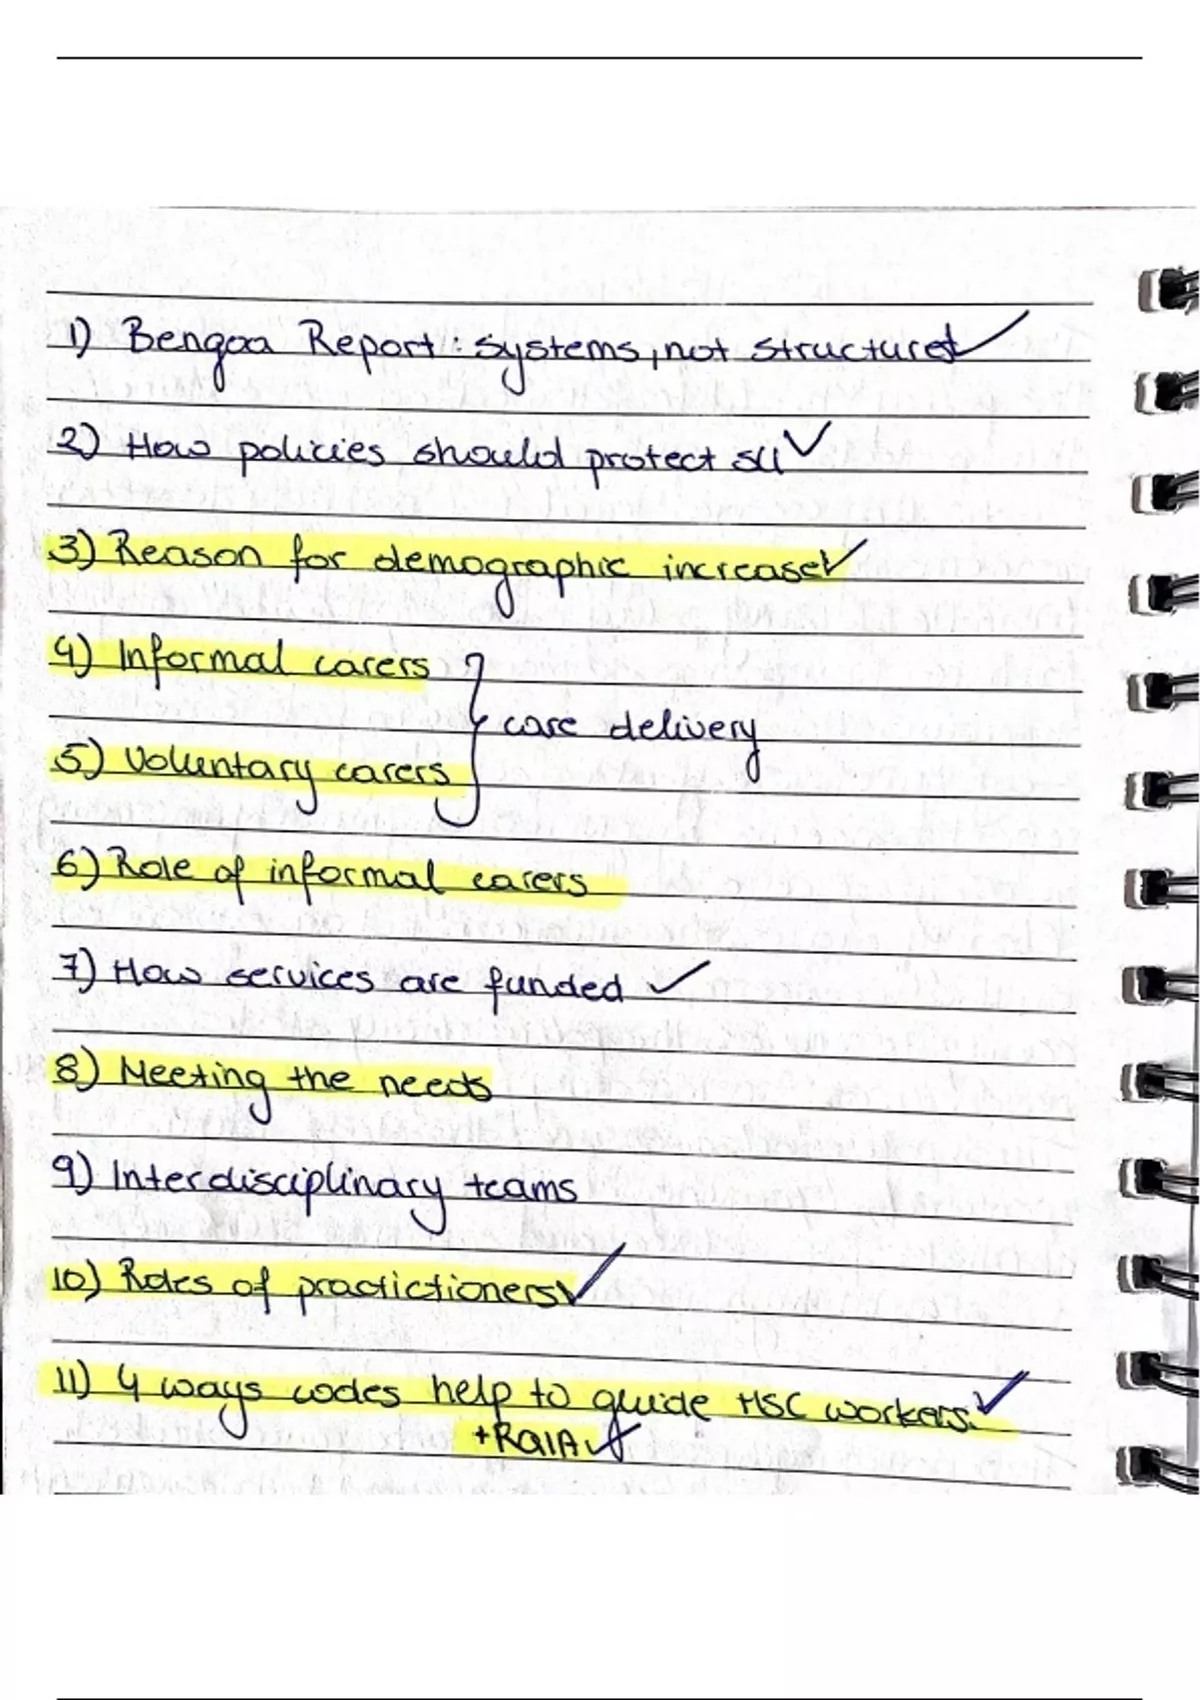 1) Bengoa Report: systems, not structures ✓
2) How policies should protect SU ✓
3) Reason for demographic increase ✓
4) Informal carers
care delivery
5) Voluntary carers
6) Role of informal carers
7) How services are funded ✓
8) Meeting the needs
9) Interdisciplinary teams
10) Roles of practictioners ✓
11) 4 ways codes help to guide HSC workers. ✓
+ RQIA ✓